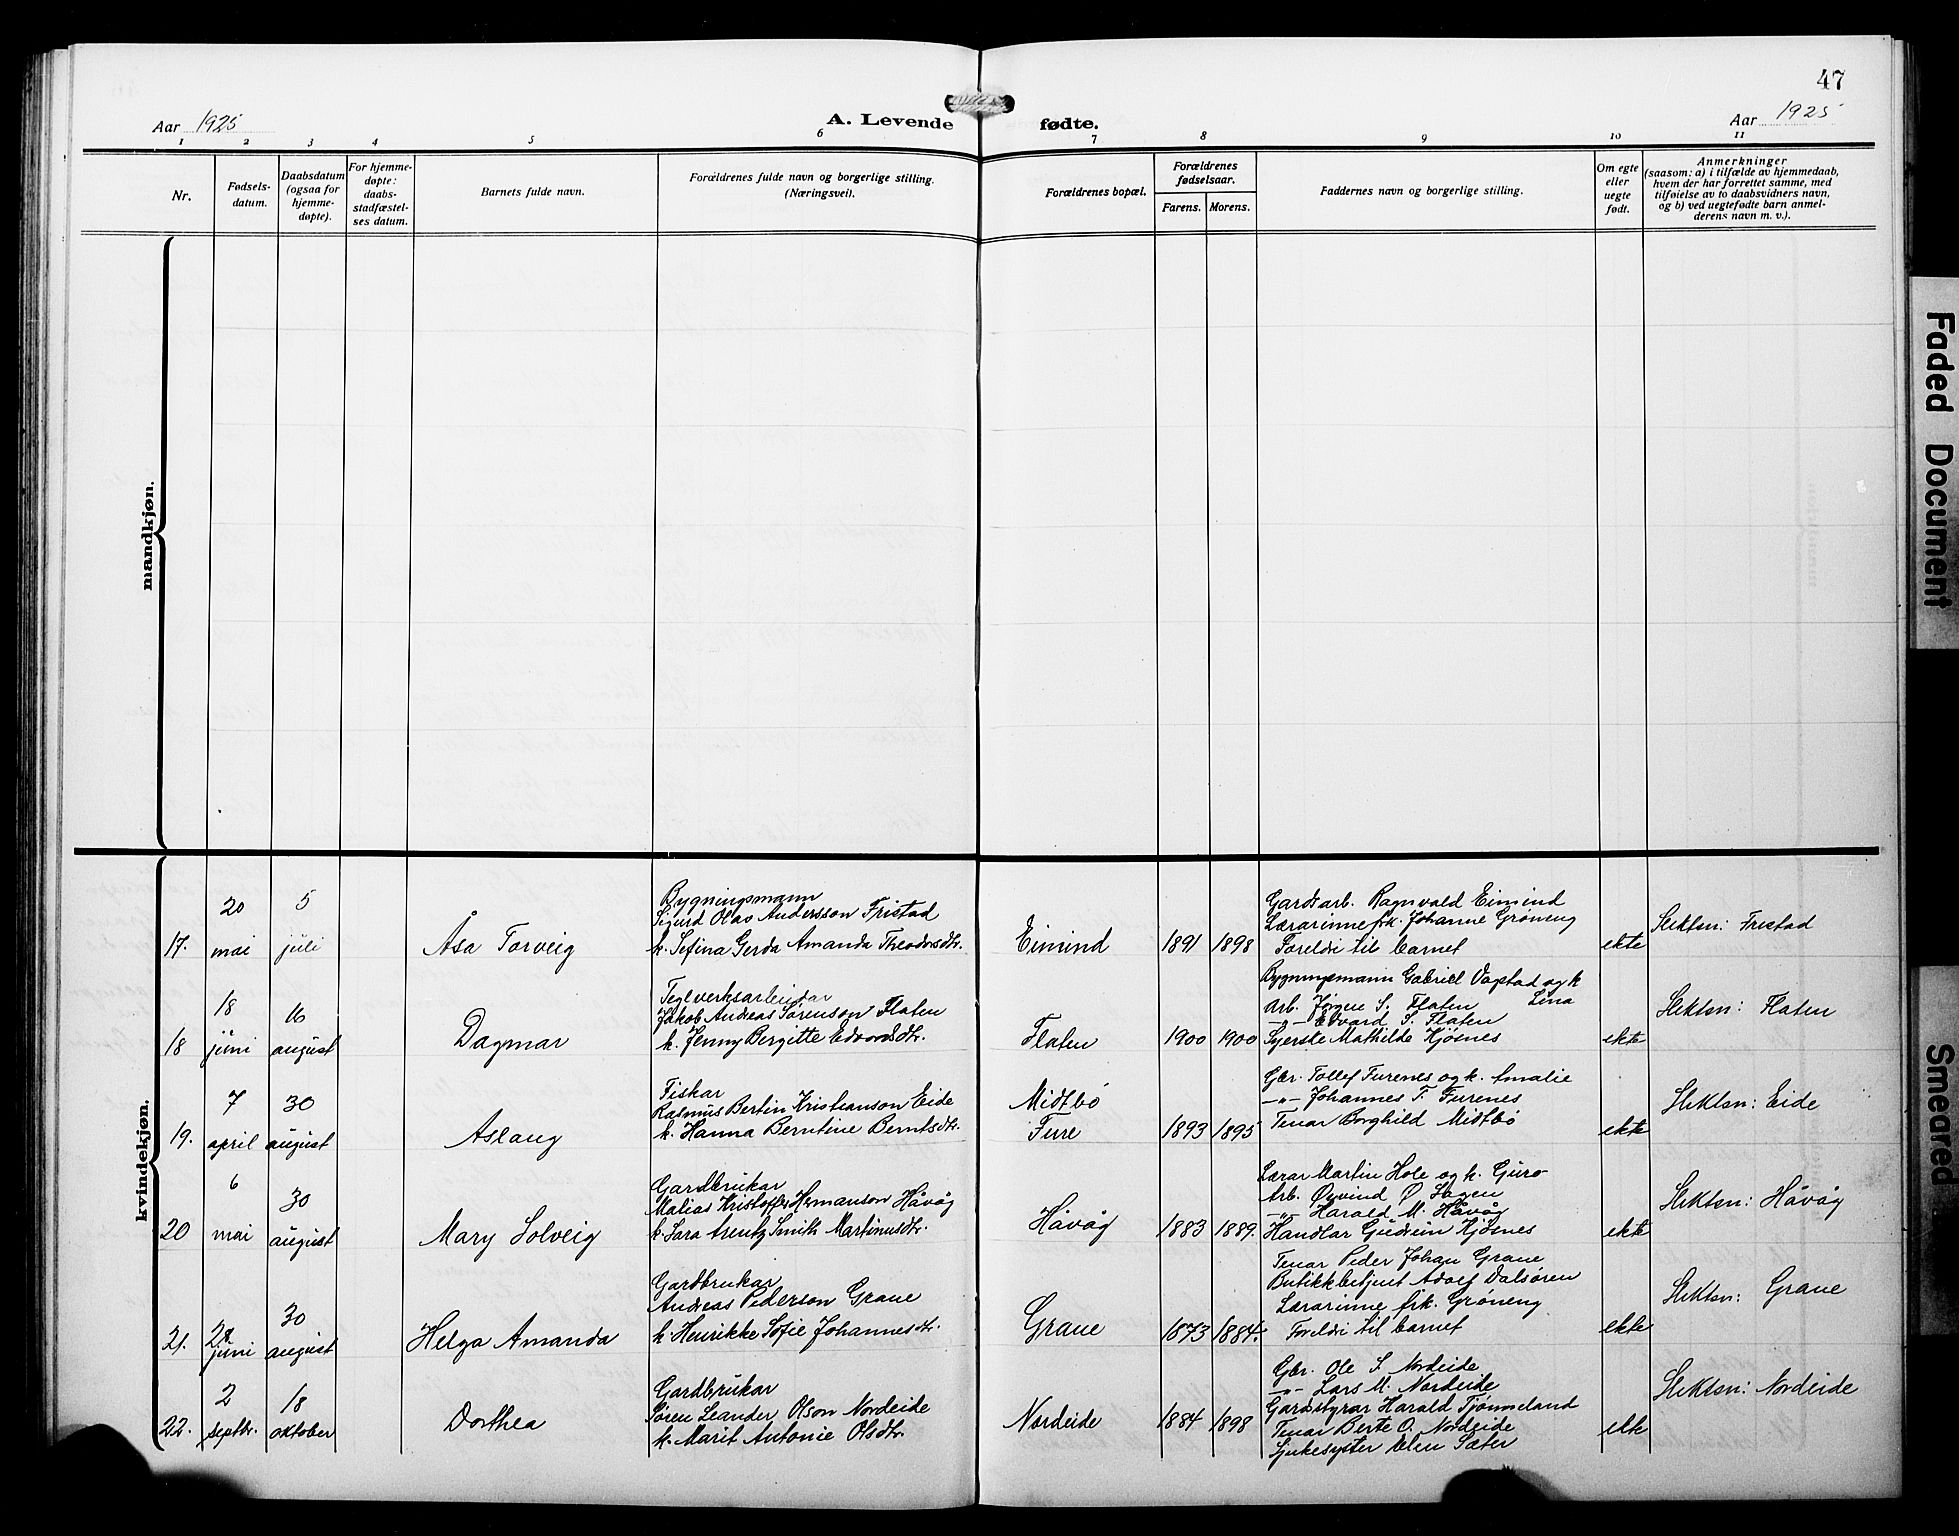 47
Aar 1925
A. Levende fødte.
Aar 1925
1 2 3 4 5 6 7 8 9 10 11
Nr.
Fødsels-
datum.
Daabsdatum
(ogsaa for
hjemme-
døpte).
For hjemme-
døpte:
daabs-
stadfæstel-
ses datum.
Barnets fulde navn.
Forældrenes fulde navn og borgerlige stilling.
(Næringsvei).
Forældrenes bopæl.
Forældrenes
fødselsaar.
Farens. Morens.
Faddernes navn og borgerlige stilling.
Om egte
eller
uegte
født.
Anmerkninger
(saasom: a) i tilfælde av hjemmedaab,
hvem der har forrettet samme, med
tilføielse av to daabsvidners navn,
og b) ved uegtefødte barn anmel-
derens navn m. v.).
mandkjøn.
kvindekjøn.
17.
20
mai
5
juli
Åsa Torveig
Bygningsmann
Sigurd Olav Andersson Fristad
k. Sefina Gerda Amanda Theodorsdtr.
Eimind
1891 1898
Gardsarb. Ragnvald Eimind
Lærarinne frk. Johanne Grøneng
Foreldri til barnet
ekte
Slektsn: Fristad
18
18
juni
16
august
Dagmar
Teglverksarbeidar
Jakob Andreas Sørenson Flaten
k. Jenny Bergitte Edvardsdtr.
Flaten
1900 1900
Bygningsmann Gabriel Vagstad og k
Lina
Arb. Jørgen S. Flaten
-"- Edvard S. Flaten
Syerske Mathilde Kjøsnes
ekte
Slektsn: Flaten
19.
7
april
30
august
Aslaug
Fiskar
Rasmus Bertin Kristianson Eide
k. Hanna Berntine Berntsdtr.
Midtbø
Fure
1893 1895
Gbr. Tollef Furenes og k. Amalie
-"- Johannes T. Furenes
Tenar Borghild Midtbø
ekte
Slektsn: Eide
20
6
mai
30
august
Mary Solveig
Gardbrukar
Malias Kristoffer Hermanson Håvåg
k. Sara Arentz Smith Martinusdtr.
Håvåg
1883 1889.
Lærar Martin Hole og k. Guro
Arb. Øyvind Ø.
-"- Harald M. Håvåg
Handlar Gudrun Kjøsnes
ekte
Slektsn: Håvåg
21.
juni
30
august
Helga Amanda
Gardbrukar
Andreas Pederson Grane
k. Henrikke Sofie Johannesdtr.
Grane
1873 1884.
Tenar Peder Johan Grane
Butikkbetjent Adolf Dalsøren
Lærarinne frk. Grøneng
Foreldri til barnet
ekte
Slektsn: Grane
22.
2
septbr.
18
oktober
Dorthea
Gardbrukar
Søren Leander Olson Nordeide
k. Marit Antonie Olsdtr.
Nordeide
1884 1898
Gbr. Ole S. Nordeide
-"- Lars M. Nordeide
Gardstyrar Harald Tjønneland
Tenar Berte O. Nordeide
Sjukesyster Elen Sæter
ekte
Slektsn: Nordeide
Faded Document
Smeared